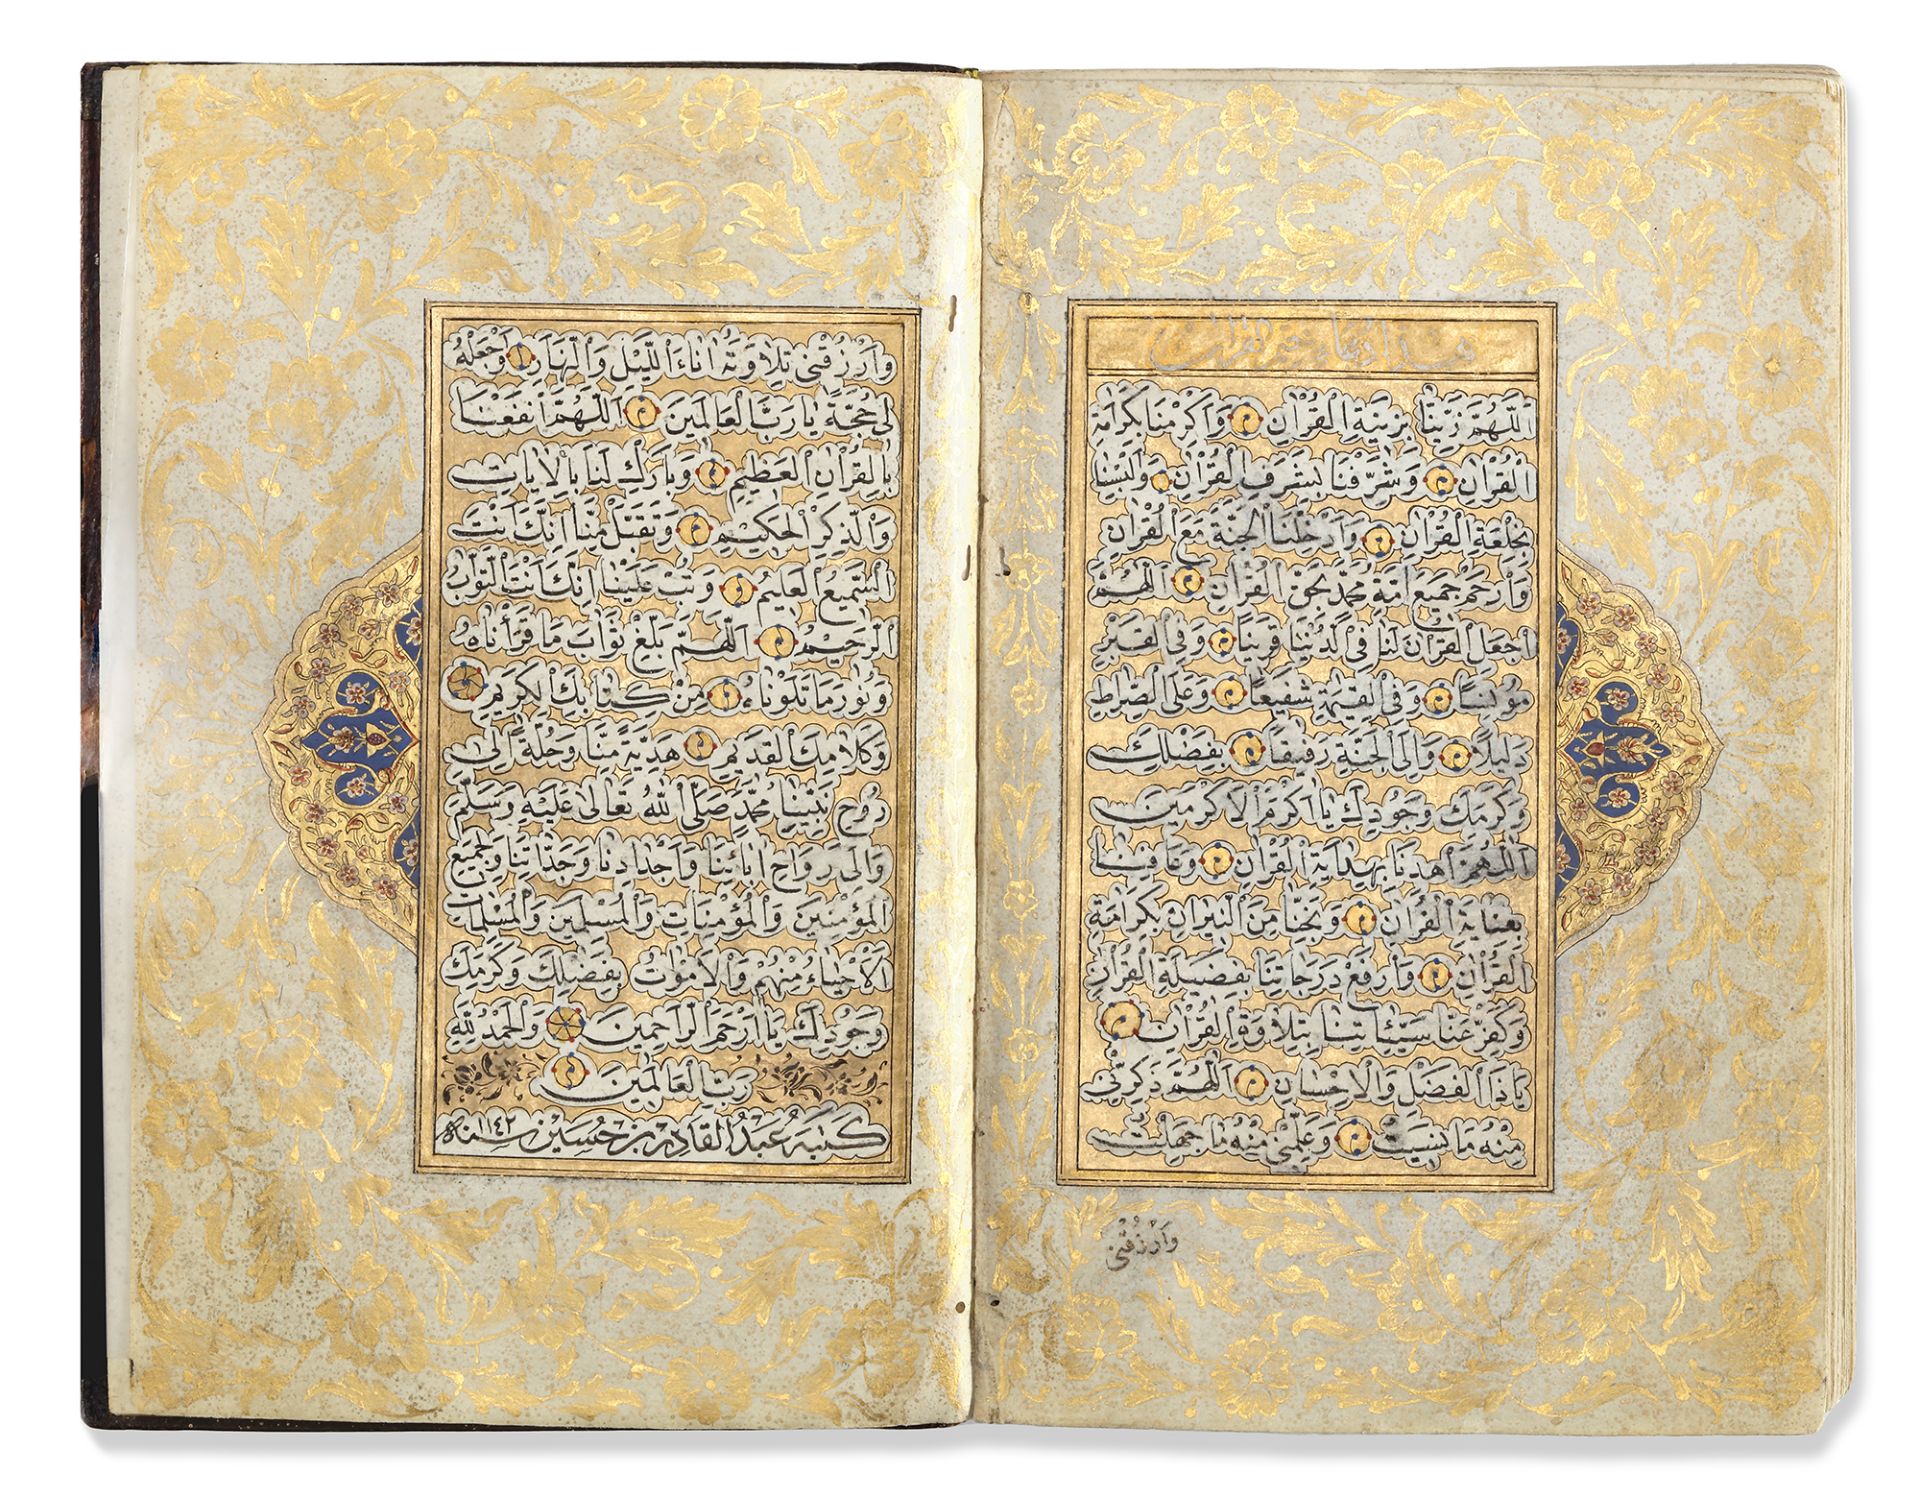 هذا دعاء ختم القرآن
اَللّٰهُمَّ زَيِّنَّا بِزِينَةِ الْقُرْاٰنِ وَاَكْرِمْنَا بِكَرَامَةِ
الْقُرْاٰنِ وَشَرِّفْنَا بِشَرَفِ الْقُرْاٰنِ وَاَلْبِسْنَا
بِخِلْعَةِ الْقُرْاٰنِ وَاَدْخِلْنَا الْجَنَّةَ مَعَ الْقُرْاٰنِ
وَارْحَمْ جَمِيعَ اُمَّةِ مُحَمَّدٍ بِحَقِّ الْقُرْاٰنِ اَللّٰهُمَّ
اجْعَلِ الْقُرْاٰنَ لَنَا فِي الدُّنْيَا قَرِينًا وَفِي الْقَبْرِ
مُونِسًا وَفِي الْقِيٰمَةِ شَفِيعًا وَعَلَى الصِّرَاطِ
دَلِيلًا وَاِلَى الْجَنَّةِ رَفِيقًا بِفَضْلِكَ
وَكَرَمِكَ وَجُودِكَ يَا اَكْرَمَ الْاَكْرَمِينَ
اَللّٰهُمَّ اهْدِنَا بِهِدَايَةِ الْقُرْاٰنِ وَعَافِنَا
بِعِنَايَةِ الْقُرْاٰنِ وَنَجِّنَا مِنَ النِّيرَانِ بِكَرَامَةِ
الْقُرْاٰنِ وَارْفَعْ دَرَجَاتِنَا بِفَضِيلَةِ الْقُرْاٰنِ
وَكَفِّرْ عَنَّا سَيِّئَاتِنَا بِتِلَاوَةِ الْقُرْاٰنِ
يَا ذَا الْفَضْلِ وَالْاِحْسَانِ اَللّٰهُمَّ ذَكِّرْنِي
مِنْهُ مَا نَسِيتُ وَعَلِّمْنِي مِنْهُ مَا جَهِلْتُ
وَارْزُقْنِي
وَارْزُقْنِي تِلَاوَتَهُ اٰنَاءَ اللَّيْلِ وَالنَّهَارِ وَاجْعَلْهُ
لِي حُجَّةً يَا رَبَّ الْعَالَمِينَ اَللّٰهُمَّ انْفَعْنَا
بِالْقُرْاٰنِ الْعَظِيمِ وَبَارِكْ لَنَا بِالْاٰيَاتِ
وَالذِّكْرِ الْحَكِيمِ وَتَقَبَّلْ مِنَّا اِنَّكَ اَنْتَ
السَّمِيعُ الْعَلِيمُ وَتُبْ عَلَيْنَا اِنَّكَ اَنْتَ التَّوَّابُ
الرَّحِيمُ اَللّٰهُمَّ بَلِّغْ ثَوَابَ مَا قَرَأْنَاهُ
وَنُورَ مَا تَلَوْنَاهُ مِنْ كِتَابِكَ الْكَرِيمِ
وَكَلَامِكَ الْقَدِيمِ هَدِيَّةً مِنَّا وَحُلَّةً اِلَى
رُوحِ نَبِيِّنَا مُحَمَّدٍ صَلَّى اللّٰهُ تَعَالَى عَلَيْهِ وَسَلَّمَ
وَاِلَى رَوَاحِ اٰبَائِنَا وَاَجْدَادِنَا وَجَدَّاتِنَا وَلِجَمِيعِ
الْمُؤْمِنِينَ وَالْمُؤْمِنَاتِ وَالْمُسْلِمِينَ وَالْمُسْلِمَاتِ
الْاَحْيَاءِ مِنْهُمْ وَالْاَمْوَاتِ بِفَضْلِكَ وَكَرَمِكَ
وَجُودِكَ يَا اَرْحَمَ الرَّاحِمِينَ وَالْحَمْدُ لِلّٰهِ
رَبِّ الْعَالَمِينَ
كتبه عبد القادر بن حسين سنه ١١٤٢